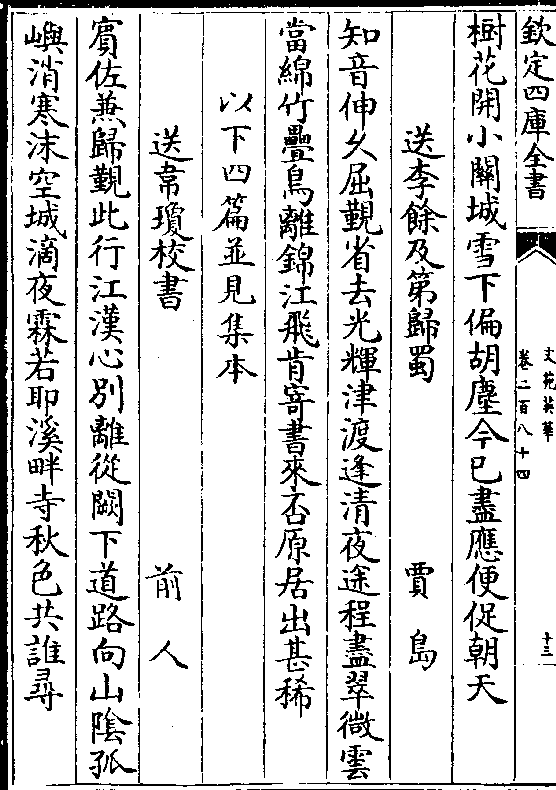 欽定四庫全書
文苑英華
卷二百八十四
十三
樹花開小關城雪下偏胡塵今已盡應便促朝天
送李餘及第歸蜀 賈島
知音伸久屈覲省去光輝津渡逢清夜途程盡翠微雲
當綿竹疊鳥離錦江飛肯寄書來否原居出甚稀
以下四篇並見集本
送韋瓊校書 前人
賓佐兼歸覲此行江漢心別離從闕下道路向山陰孤
嶼消寒沫空城滴夜霖若耶溪畔寺秋色共誰尋